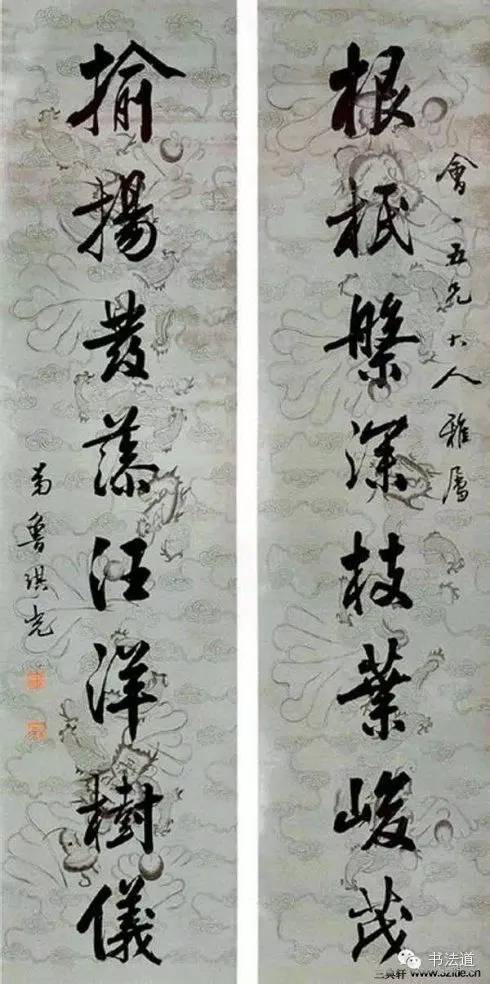 會一五兄大人雅屬
根柢槃深枝葉峻茂
揄揚發藻汪洋樹儀
弟魯琪光
书法道